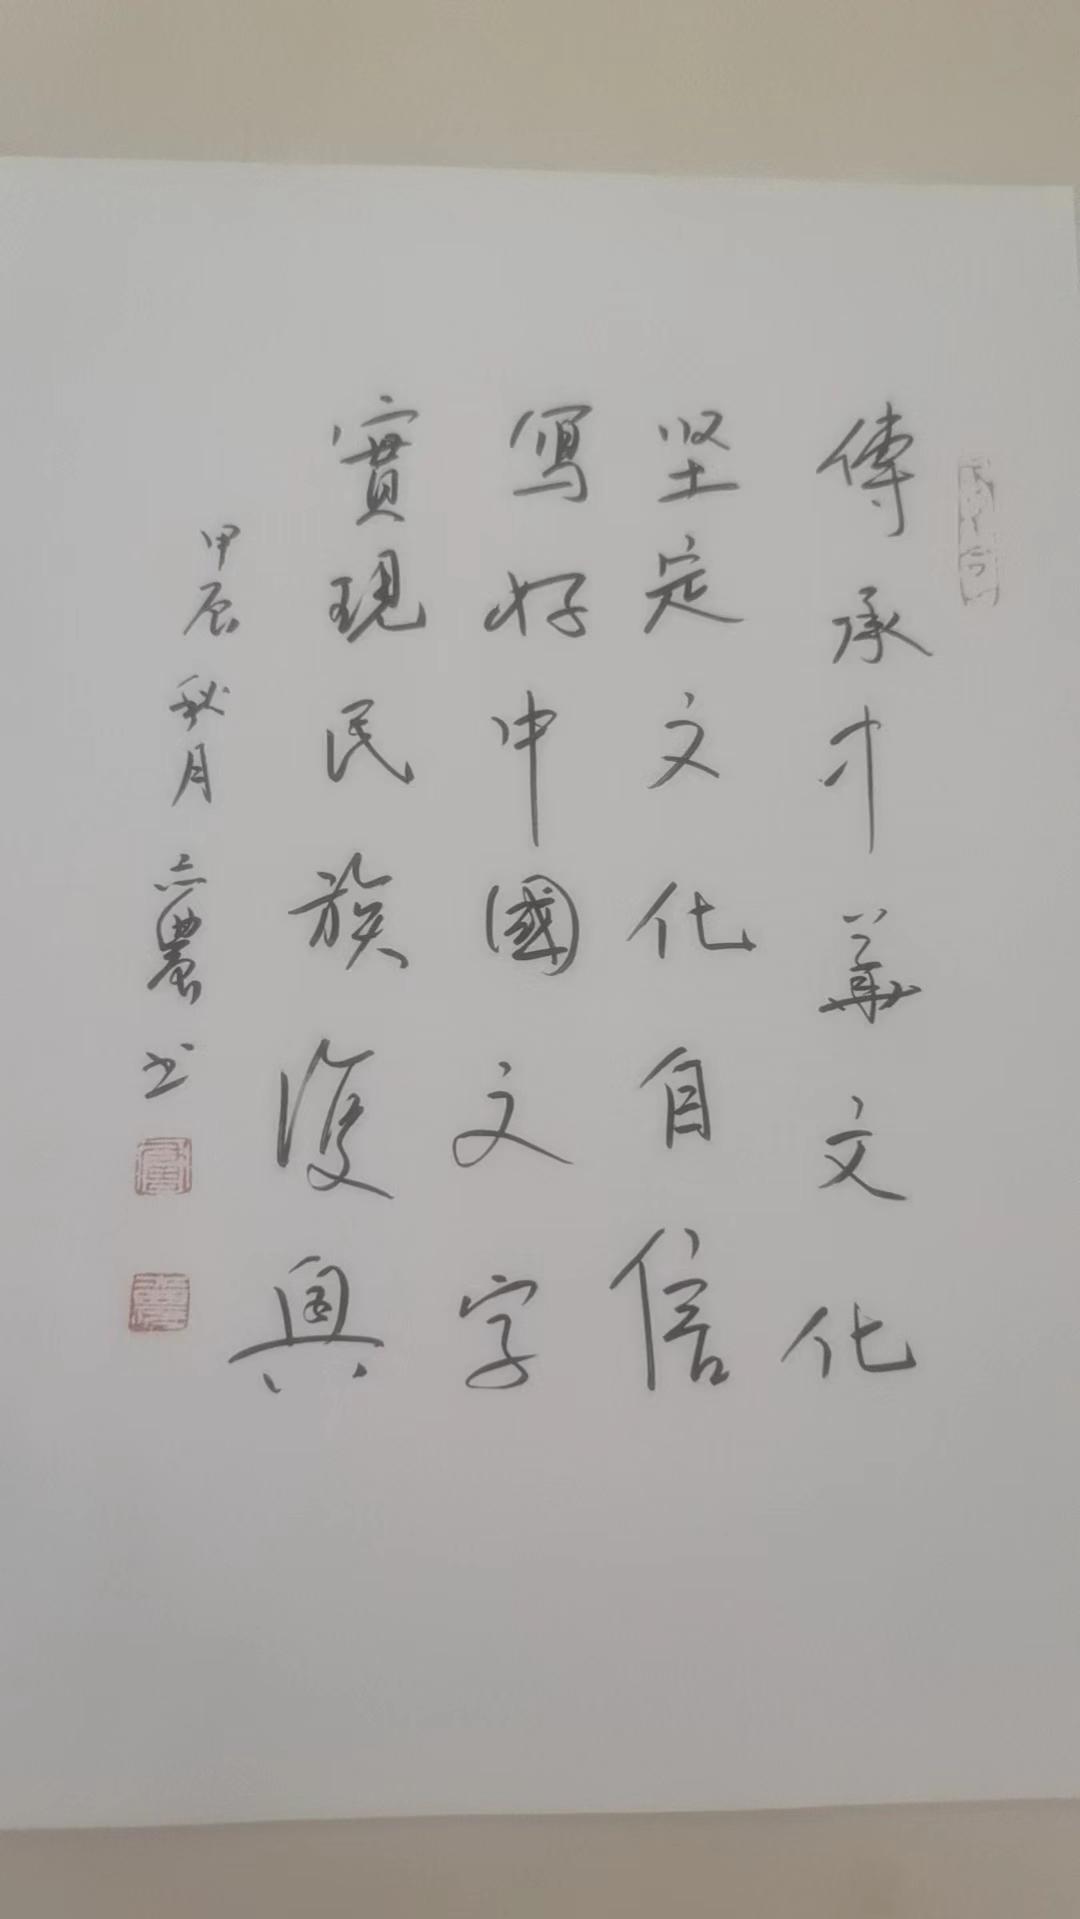 傳承中華文化
坚定文化自信
寫好中國文字
實現民族復興
甲辰秋月農书